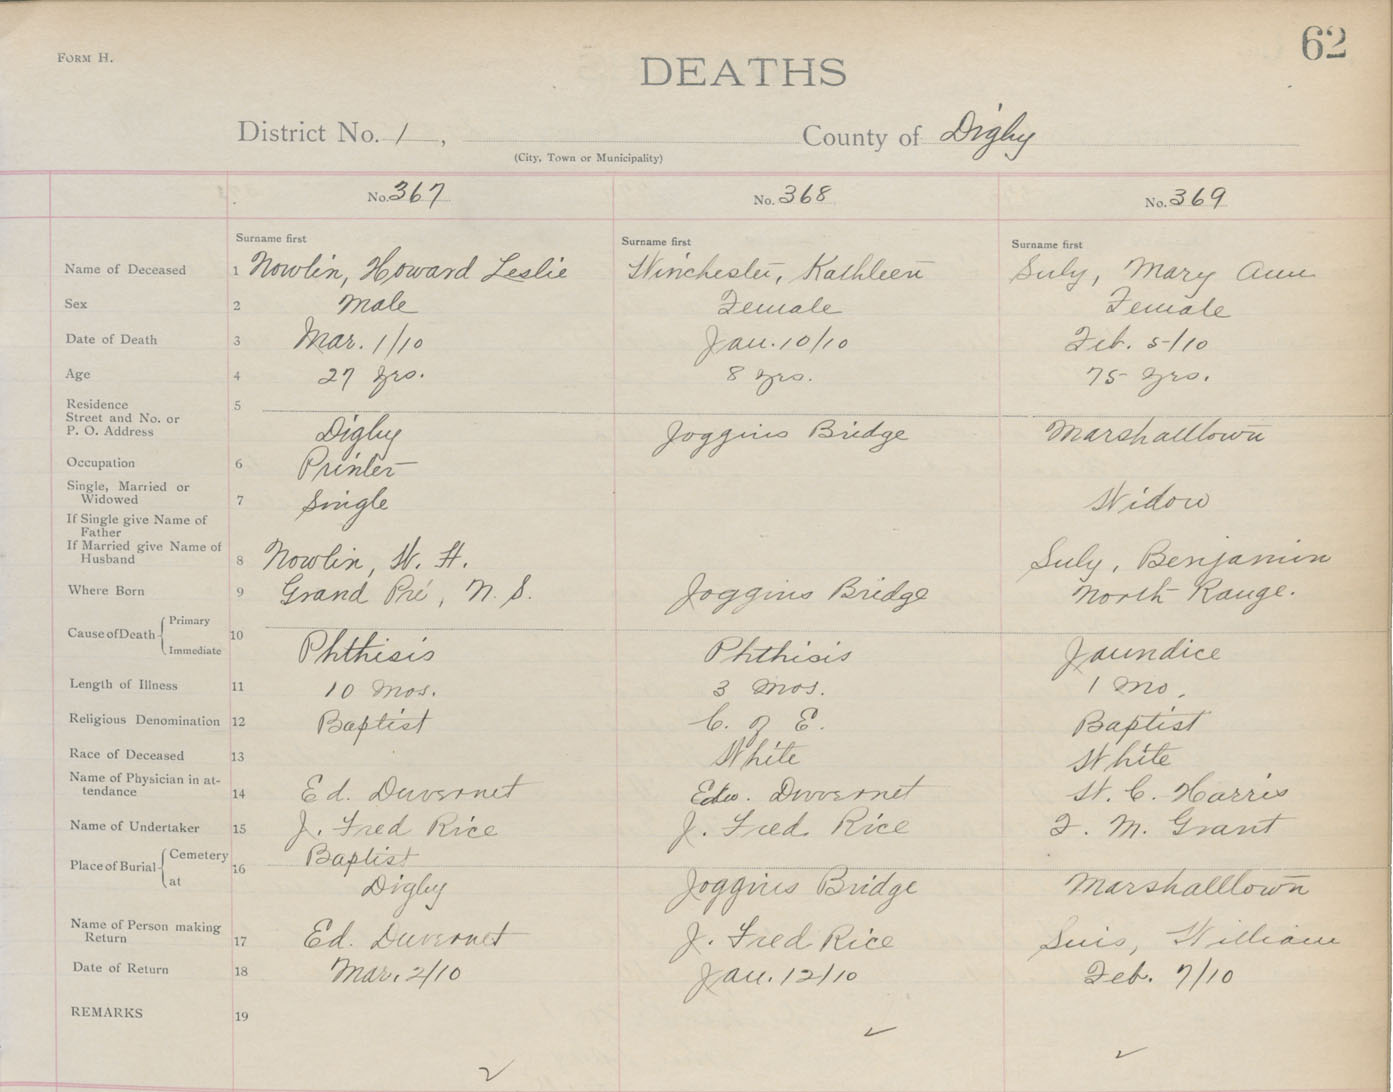 62
FORM H.
DEATHS
District No. 1, County of Digby
(City, Town or Municipality)
No. 367 No. 368 No. 369
Surname first Surname first Surname first
Name of Deceased 1 Nowlin, Howard Leslie Winchester, Kathleen Suly, Mary Ann
Sex 2 Male Female Female
Date of Death 3 Mar. 1/10 Jan. 10/10 Feb. 5/10
Age 4 27 yrs. 8 yrs. 75 yrs.
Residence 5
Street and No. or
P. O. Address Digby Joggins Bridge Marshalltown
Occupation 6 Printer
Single, Married or
Widowed 7 Single Widow
If Single give Name of
Father
If Married give Name of
Husband 8 Nowlin, W. H. Suly, Benjamin
Where Born 9 Grand Pré, N. S. Joggins Bridge North Range.
Cause of Death Primary
10
Immediate Phthisis Phthisis Jaundice
Length of Illness 11 10 Mos. 3 Mos. 1 Mo.
Religious Denomination 12 Baptist C. of E. Baptist
Race of Deceased 13 White White
Name of Physician in at-
tendance 14 Ed. Duvernet Edw. Duvernet W. C. Harris
Name of Undertaker 15 J. Fred Rice J. Fred Rice F. M. Grant
Place of Burial Cemetery 16 Baptist
at Digby Joggins Bridge Marshalltown
Name of Person making
Return 17 Ed. Duvernet J. Fred Rice William
Date of Return 18 Mar. 2/10 Jan. 12/10 Feb. 7/10
REMARKS 19